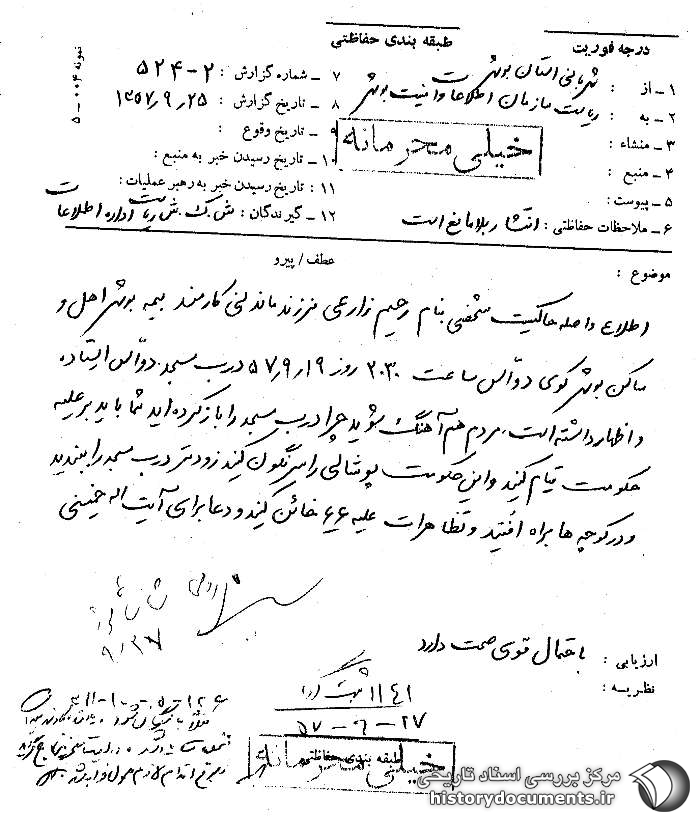 درجه فوریت
طبقه بندی حفاظتی
نمونه ۰۰۴ – ۵
۱ – از : شهربانی استان بوشهر
۲ – به : ریاست سازمان اطلاعات و امنیت بوشهر
۳ – منشاء :
۴ – منبع :
۵ – پیوست :
۶ – ملاحظات حفاظتی : انتشار بلامانع است
۷ – شماره گزارش : ۲–۵۲۴
۸ – تاریخ گزارش : ۱۳۵۷٫۹٫۲۵
۹ – تاریخ وقوع :
۱۰ – تاریخ رسیدن خبر به منبع :
۱۱ : تاریخ رسیدن خبر به رهبر عملیات :
۱۲ – گیرندگان : ریاست اداره اطلاعات
خیلی محرمانه
عطف / پیرو
موضوع :
اطلاع واصله حاکیست شخصی بنام رحیم زارعی فرزند کارمند بیمه بوشهر اهل و
ساکن بوشهر کوی دوّاس ساعت ۲۰۳۰ روز ۵۷٫۹٫۱۹ درب مسجد دوّاس ایستاده
و اظهار داشته است. مردم هم آهنگ شوید چرا درب مسجد را باز کرده اید شما باید بر علیه
حکومت قیام کنید و این حکومت پوشالی را سرنگون کنید زودتر درب مسجد را ببندید
و در کوچه ها براه افتید و تظاهرات علیه خائن کنید و دعا برای آیت اله خمینی
ارزیابی : باحتمال قوی صحت دارد
نظریه :
۹٫۲۷
۱۱۴۱
۵۷–۹–۲۷
طبقه بندی حفاظتی
خیلی محرمانه
مرکز بررسی اسناد تاریخی
historydocuments.ir